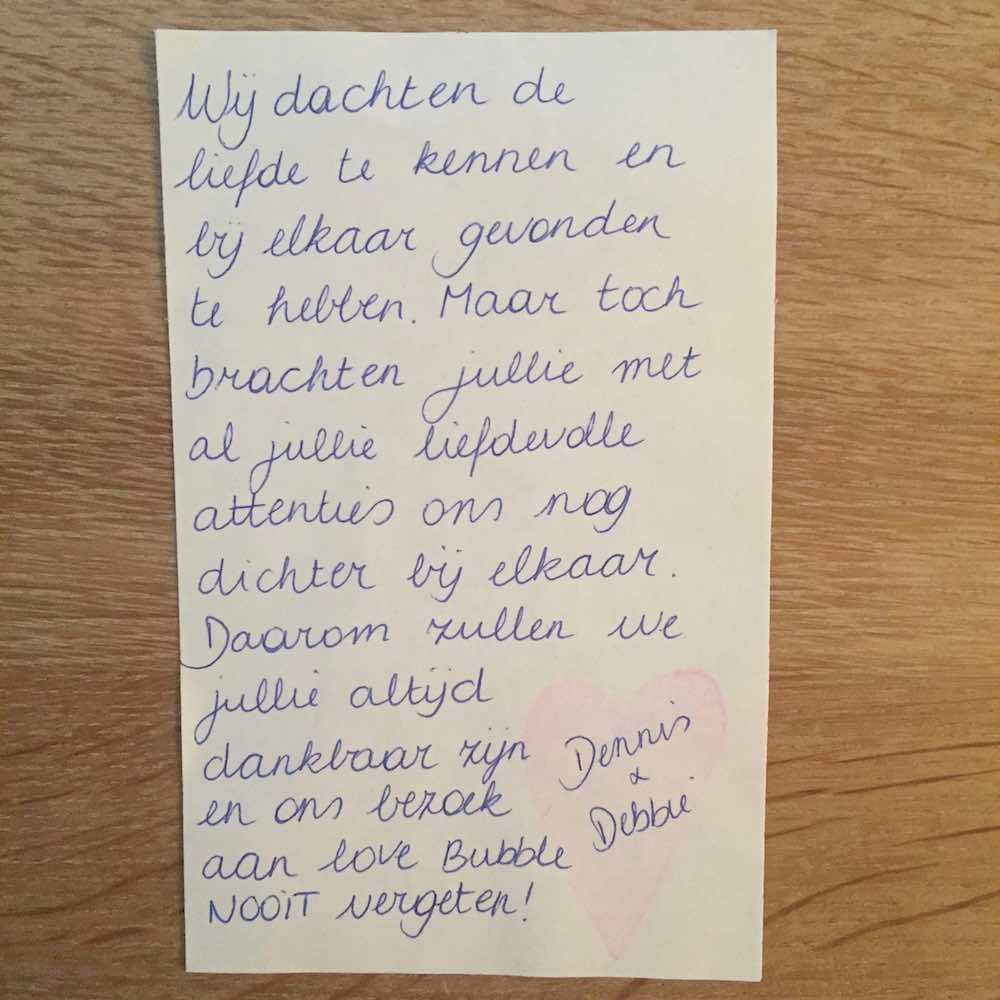 Wij dachten de
liefde te kennen en
bij elkaar gevonden
te hebben. Maar toch
brachten jullie met
al jullie liefdevolle
attenties ons nog
dichter bij elkaar.
Daarom zullen we
jullie altijd
dankbaar zijn
en ons bezoek
aan love Bubble
NOOIT vergeten!
Dennis
&
Debbie